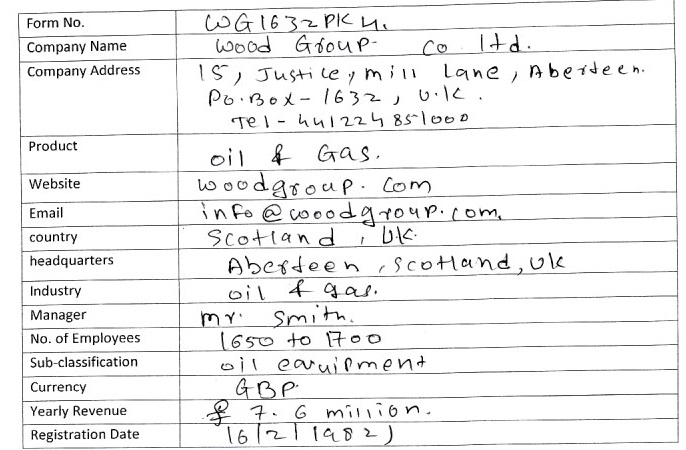 Form No. WG1632PK4.
Company Name Wood Group Co ltd.
Company Address 15, Justice, mill Lane, Aberdeen.
Po.Box-1632, U.K.
Tel-441224851000
Product oil & Gas.
Website woodgroup.com
Email info@wooodgroup.com.
country Scotland, UK.
headquarters Aberdeen, Scotland, UK
Industry oil & gas.
Manager mr. Smith.
No. of Employees 1650 to 1700
Sub-classification oil equipment
Currency GBP.
Yearly Revenue £ 7.6 million.
Registration Date 16/2/1982)